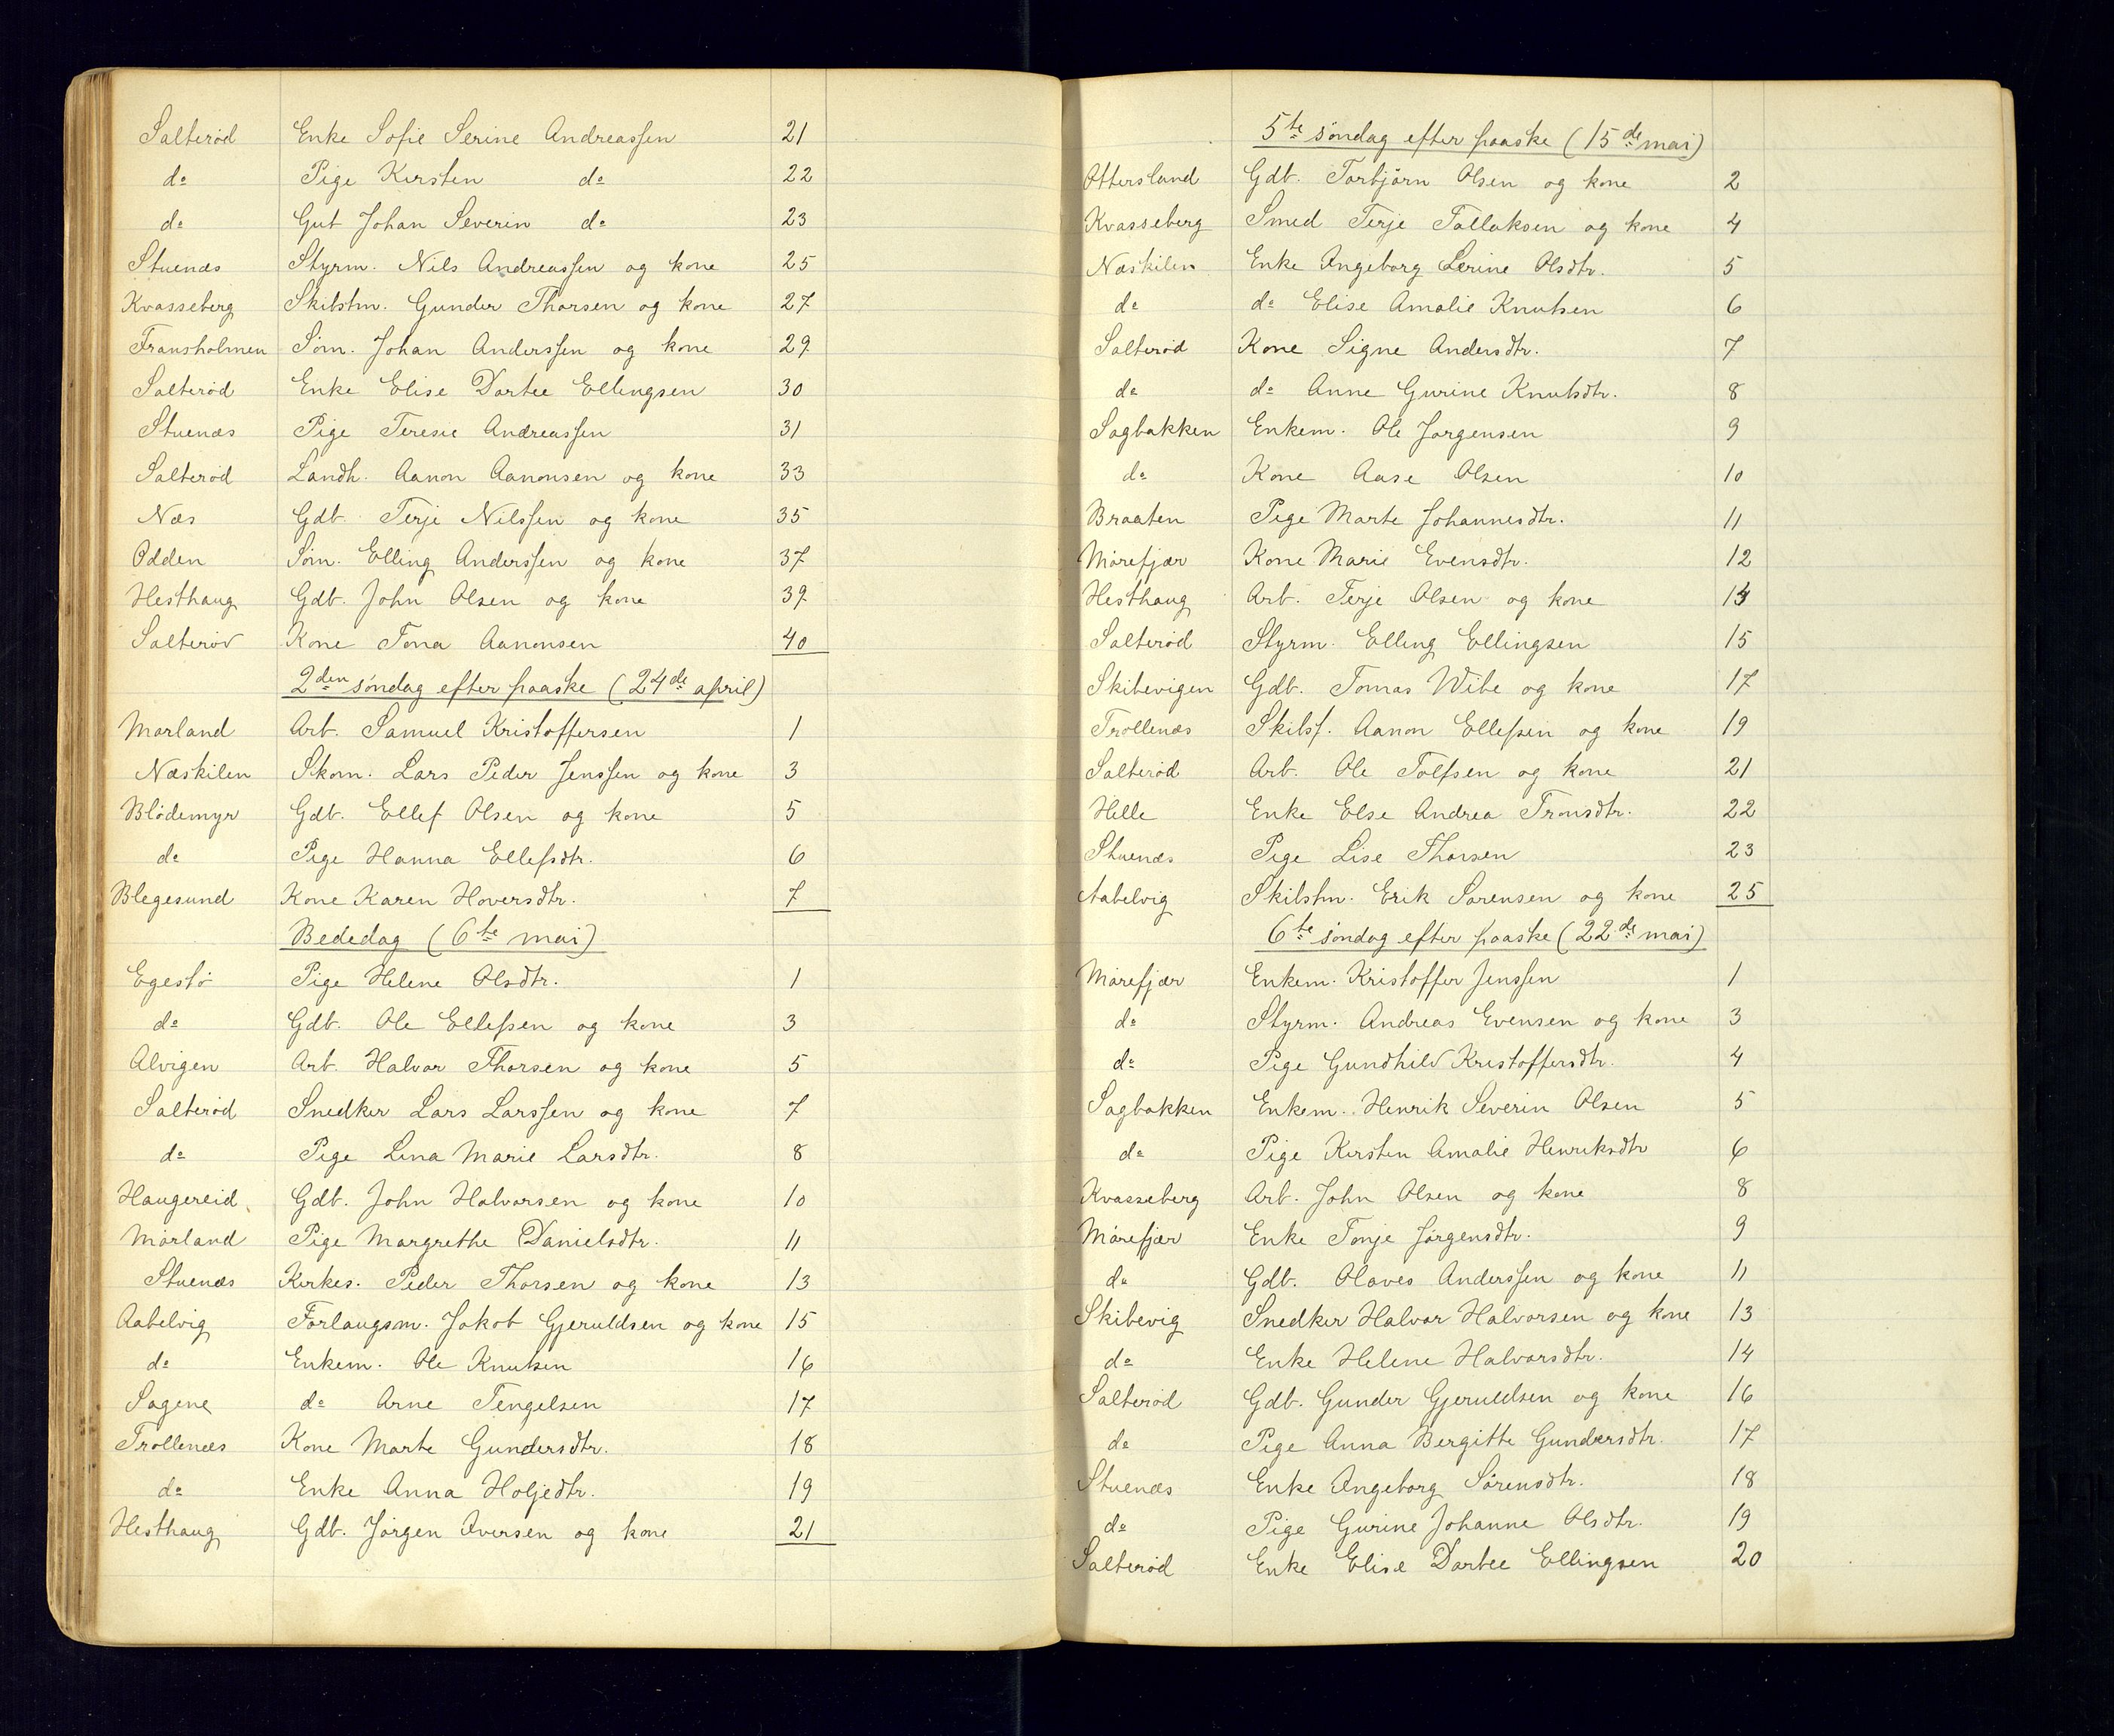 Salterød Enke Sofie Serine Andreassen 21
do Pige Kirsten do 22
do Gut Johan Severin do 23
Stuenæs Styrm. Nils Andreassen og kone 25
Kvasseberg Skibstm. Gunder Thorsen og kone 27
Fransholmen Søm. Johan Anderssen og kone 29
Salterød Enke Elise Dortee Ellingsen 30
Stuenæs Pige Teresie Andreassen 31
Salterød Landh. Aanon Aanonsen og kone 33
Næs Gdb. Terje Nilssen og kone 35
Odden Søm. Elling Anderssen og kone 37
Hesthaug Gdb. John Olsen og kone 39
Salterød Kone Tona Aanonsen 40
2den søndag efter paaske (24de april)
Mørland Arb. Samuel Kristoffersen 1
Næskilen Skom. Lars Peder Jenssen og kone 3
Blødemyr Gdb. Ellef Olsen og kone 5
do Pige Hanna Ellefsdtr. 6
Blegesund Kone Karen Hoversdtr. 7
Bededag (6te mai)
Egestø Pige Helene Olsdtr. 1
do Gdb. Ole Ellefsen og kone 3
Alvigen Arb. Halvor Thorsen og kone 5
Salterød Snedker Lars Larssen og kone 7
do Pige Lina Marie Larsdtr. 8
Haugereid Gdb. John Halvorsen og kone 10
Mørland Pige Margrethe Danielsdtr. 11
Stuenæs Kirkes. Peder Thorsen og kone 13
Aabelvig Forlaugsm. Jakob Gjeruldsen og kone 15
do Enkem. Ole Knutsen 16
Sagene do Arne Tengelsen 17
Trollenæs Kone Marte Gundersdtr. 18
do Enke Anna Holjedtr. 19
Hesthaug Gdb. Jørgen Iversen og kone 21
5te søndag efter paaske (15de mai)
Ottersland Gdb. Torbjørn Olsen og kone 2
Kvasseberg Smed Terje Tallaksen og kone 4
Næskilen Enke Ingeborg Serine Olsdtr. 5
do do Elise Amalie Knutsen 6
Salterød Kone Signe Andersdtr. 7
do do Anne Gurine Knutsdtr. 8
Sagbakken Enkem. Ole Jørgensen 9
do Kone Aase Olsen 10
Braaten Pige Marte Johannesdtr. 11
Mørefjær Kone Marie Evensdtr. 12
Hesthaug Arb. Terje Olsen og kone 14
Salterød Styrm. Elling Ellingsen 15
Skibevigen Gdb. Tomas Wibe og kone 17
Trollenæs Skibsf. Aanon Ellefsen og kone 19
Salterød Arb. Ole Tolfsen og kone 21
Helle Enke Else Andrea Tronsdtr. 22
Stuenæs Pige Lise Thorsen 23
Aabelvig Skibstm. Erik Sørensen og kone 25
6te søndag efter paaske (22de mai)
Mørefjær Enkem. Kristoffer Jenssen 1
do Styrm. Andreas Evensen og kone 3
do Pige Gundhild Kristoffersdtr. 4
Sagbakken Enkem. Henrik Severin Olsen 5
do Pige Kirsten Amalie Henriksdtr 6
Kvasseberg Arb. John Olsen og kone 8
Mørefjær Enke Tonje Jørgensdtr. 9
do Gdb. Olaves Anderssen og kone 11
Skibevig Snedker Halvor Halvorsen og kone 13
do Enke Helene Halvorsdtr. 14
Salterød Gdb. Gunder Gjeruldsen og kone 16
do Pige Anna Bergitte Gundersdtr. 17
Stuenæs Enke Ingeborg Sørensdtr. 18
do Pige Gurine Johanne Olsdtr. 19
Salterød Enke Elise Dortee Ellingsen 20